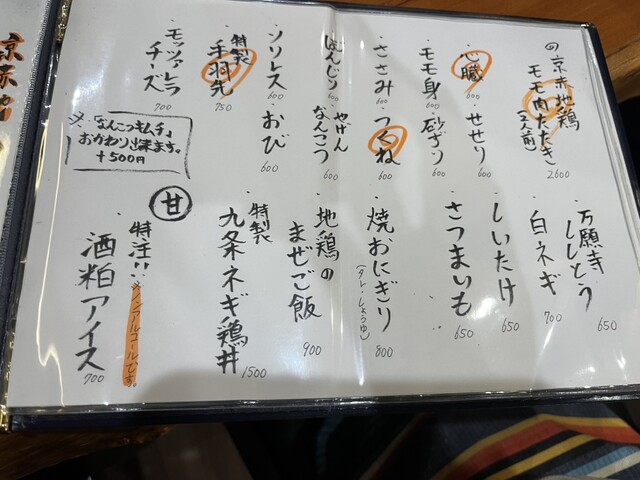 の京赤地鶏
モモ肉たたき
(2人前)
2600
心臓
600
せせり
600
モモ身
600
砂ずり
600
ささみ
600
つくね
600
ぼんじり
600
やげん
なんこつ
600
ソリレス
600
おび
600
特製
手羽先
750
モッツァレラ
チーズ
700
※「なんこつキムチ」
おかわり出来ます。
+500円
万願寺
ししとう
650
白ネギ
700
しいたけ
650
さつまいも
650
焼おにぎり
(タレ・しょうゆ)
800
地鶏の
まぜご飯
900
特製
九条ネギ鶏丼
1500
甘
特注!!
ノンアルコールです。
酒粕アイス
700